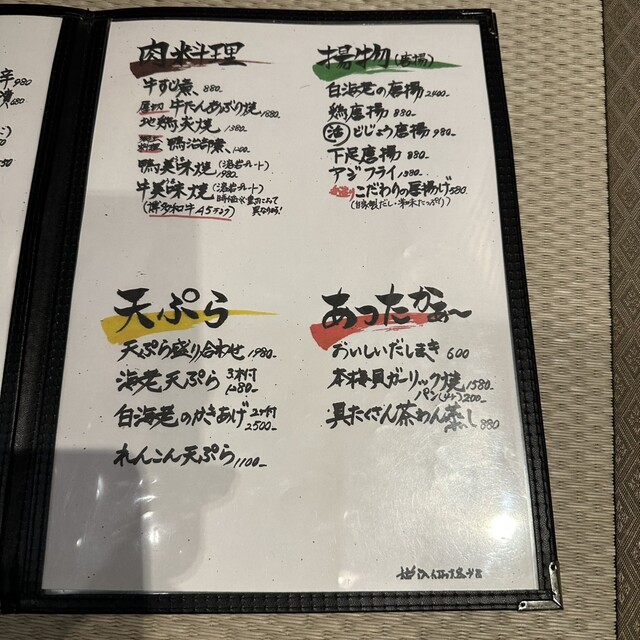 肉料理
牛すじ煮 880-
厚切 牛たんあぶり焼 1880-
地鶏炭焼 1380-
鴨治部煮 1200
鴨美味焼 (溶岩プレート) 1980-
牛美味焼 (溶岩プレート)
(博多和牛A5ランク)
揚物 (唐揚)
白海老の唐揚 2400-
鶏唐揚 880-
活 どじょう唐揚 980-
下足唐揚 880-
アジフライ
こだわりの厚揚げ 580
(自家製だし・薬味たっぷり)
天ぷら
天ぷら盛り合わせ 1980-
海老天ぷら 3本付 1280-
白海老のかきあげ 2ケ付 2500-
れんこん天ぷら 1100-
あったかぁ〜
おいしいだしまき 600
本梅貝ガーリック焼 1580-
パン(4ケ) 200-
具だくさん茶わん蒸し 880
680